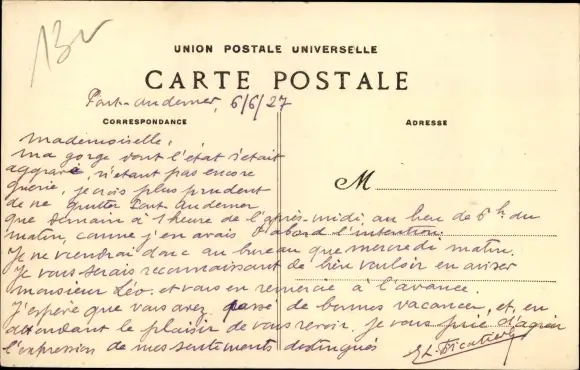 13v
UNION POSTALE UNIVERSELLE
CARTE POSTALE
Pont-Audemer, 6/6/27
CORRESPONDANCE
ADRESSE
M
Mademoiselle,
Ma gorge dont l'état s'était
aggravé, n'étant pas encore
guérie, je crois plus prudent
de ne quitter Pont Audemer
que demain à 1 heure de l'après-midi, au lieu de 6h du
matin, comme j'en avais d'abord l'intention.
Je ne viendrai donc au bureau que mercredi matin.
Je vous serais reconnaissant de bien vouloir en aviser
Monsieur Léo. et vous en remercie à l'avance.
J'espère que vous avez passé de bonnes vacances, et, en
attendant le plaisir de vous revoir, je vous prie d'agréer
l'expression de mes sentiments distingués